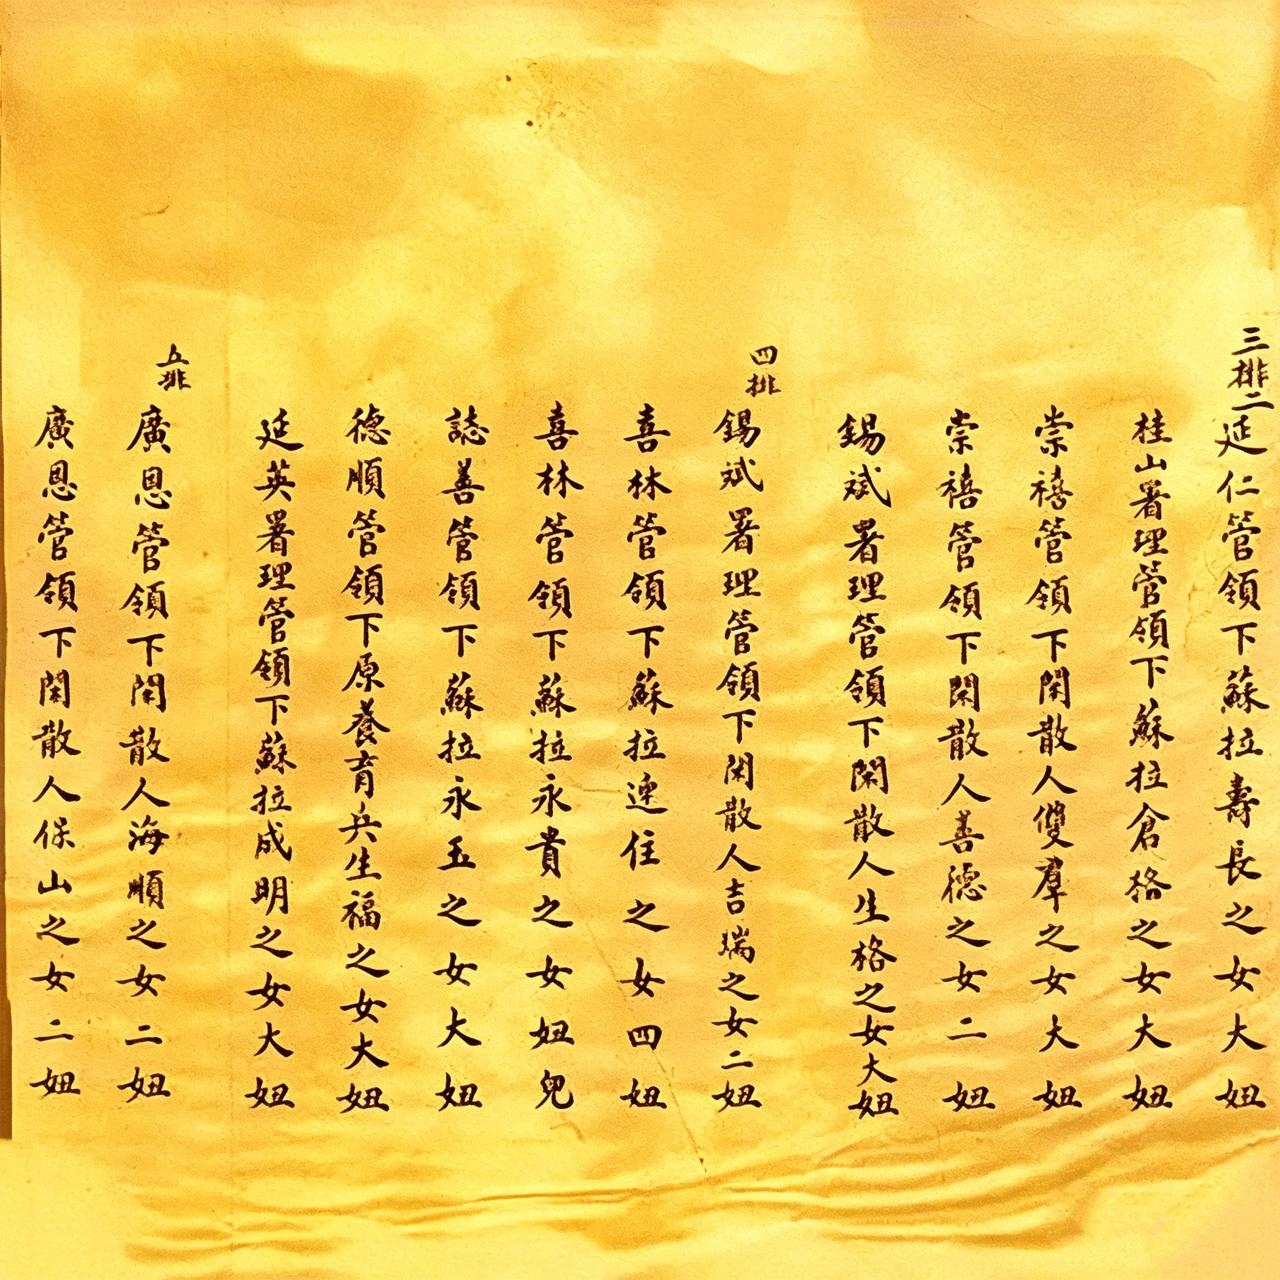 三排二
延仁管領下蘇拉壽長之女大妞
桂山署理管領下蘇拉倉格之女大妞
崇禧管領下閑散人雙羣之女大妞
崇禧管領下閑散人善德之女二妞
錫斌署理管領下閑散人生格之女大妞
四排
錫斌署理管領下閑散人吉瑞之女二妞
喜林管領下蘇拉連住之女四妞
喜林管領下蘇拉永貴之女妞兒
誌善管領下蘇拉永玉之女大妞
德順管領下原養育兵生福之女大妞
延英署理管領下蘇拉成明之女大妞
五排
廣恩管領下閑散人海順之女二妞
廣恩管領下閑散人保山之女二妞